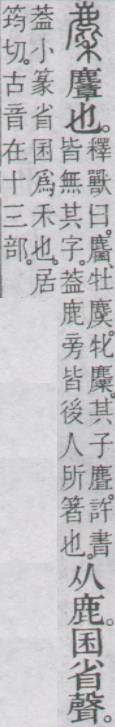 麞也。釋獸曰。麕、牡麌。牝麜。其子麆。許書
皆無其字。葢鹿旁皆後人所箸也。从鹿。囷省聲。
葢小篆省囷爲禾也。居
筠切。古音在十三部。